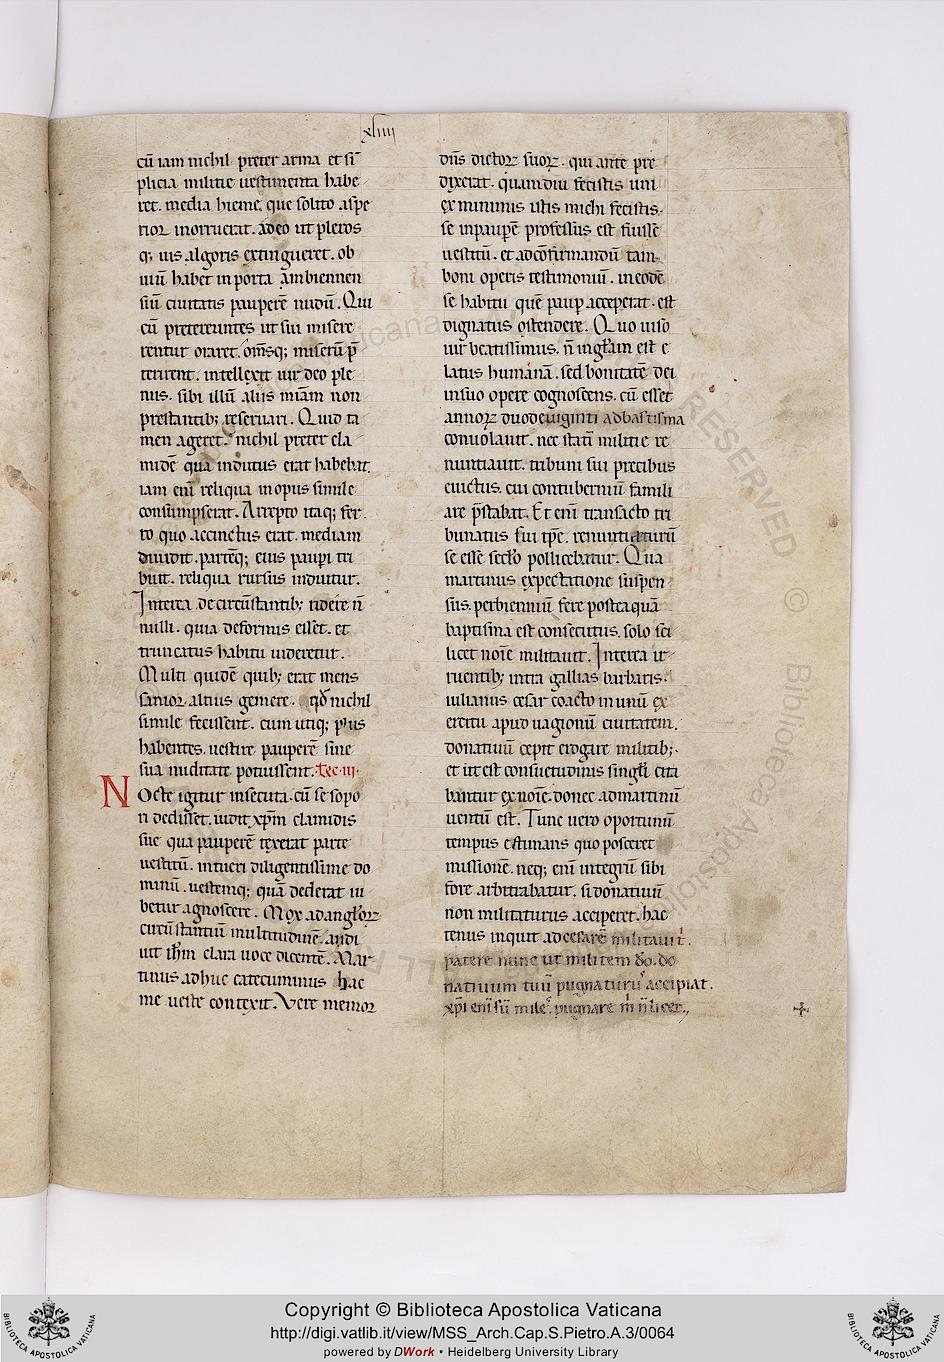 xliiii
cū iam nichil preter arma et si̅
plicia militie uestimenta habe
ret. media hieme. que solito aspe
rior inorruerat. Adeo ut pleros
q; uis algoris extingueret. ob
uiū habet in porta ambiennen
siū ciuitatis pauperē nudū. Qui
cū pretereuntes ut sui misere
rentur oraret. om̅sq; miserū p̅
terirent. intellexit uir deo ple
nus. sibi illū aliis mīam non
prestantib; reseruari. Quid ta
men ageret. nichil preter cla
midē qua indutus erat habebat.
iam eni̅ reliqua in opus simile
consumpserat. Arrepto itaq; fer
ro quo accinctus erat. mediam
diuidit. partēq; eius paupi tri
buit. reliqua rursus induitur.
Interea de circūstantib; ridere n̅
nulli. quia deformis esset. et
truncatus habitu uideretur.
Multi quidē quib; erat mens
sanior. altius gemere. qđ nichil
simile fecissent. cum utiq; pl'us
habentes. uestire pauperē sine
sua nuditate potuissent. Lec. iii.
Nocte igitur insecuta. cū se sopo
ri dedisset. uidit xp̅m clamidis
sue qua pauperē texerat parte
uestitū. intueri diligentissime do
minū. uestemq; quā dederat iu
betur agnoscere. Mox ad angl'oꝝ
circūstantiū multitudinē. audi
uit ih̅m clara uoce dicentē. Mar
tinus adhuc catecuminus hac
me ueste contexit. Vere memor
dn̅s dictoꝝ suoꝝ. qui ante pre
dixerat. quamdiu fecistis uni
ex minimis istis michi fecistis.
se in paupe̅ professus est fuisse
uestitū. et ad co̅firmandū tam
boni operis testimoniū. in eodē
se habitu quē paup̅ acceperat. est
dignatus ostendere. Quo uiso
uir beatissimus. n̅ in gl̅am est e
latus humanā. sed bonitatē dei
in suo opere cognoscens. cū esset
annoꝝ duodeuiginti ad baptisma
conuolauit. nec stati̅ militie re
nuntiauit. tribuni sui precibus
euictus. cui contuberniū famili
are p̅stabat. Et eni̅ transacto tri
bunatus sui tp̅e. renuntiaturū
se esse sec̅lo pollicebatur. Qua
martinus expectatione suspen
sus. per biennium fere posteaquā
baptisma est consecutus. solo sci
licet noi̅e militauit. Interea ir
ruentib; intra gallias barbaris.
iulianus cesar coacto in unū ex
ercitu apud uagionū ciuitatem.
donatiuū cepit erogare militib;.
et ut est consuetudinis singl̅i cita
bantur ex noi̅e. donec ad martinū
uentū est. Tunc uero oportunū
tempus estimans quo posceret
missionē. neq; eni̅ integrū sibi
fore arbitrabatur. si donatiuū
non militaturus acciperet. hac
tenus inquit ad cesarē militaui t'.
patere nunc ut militem do. do
natiuum tuū pugnaturus accipiat.
xp̅i eni̅ sū miles. pugnare m̅ n̅ licet.
Copyright © Biblioteca Apostolica Vaticana
http://digi.vatlib.it/view/MSS_Arch.Cap.S.Pietro.A.3/0064
powered by DWork • Heidelberg University Library
BIBLIOTECA APOSTOLICA VATICANA
BIBLIOTECA APOSTOLICA VATICANA